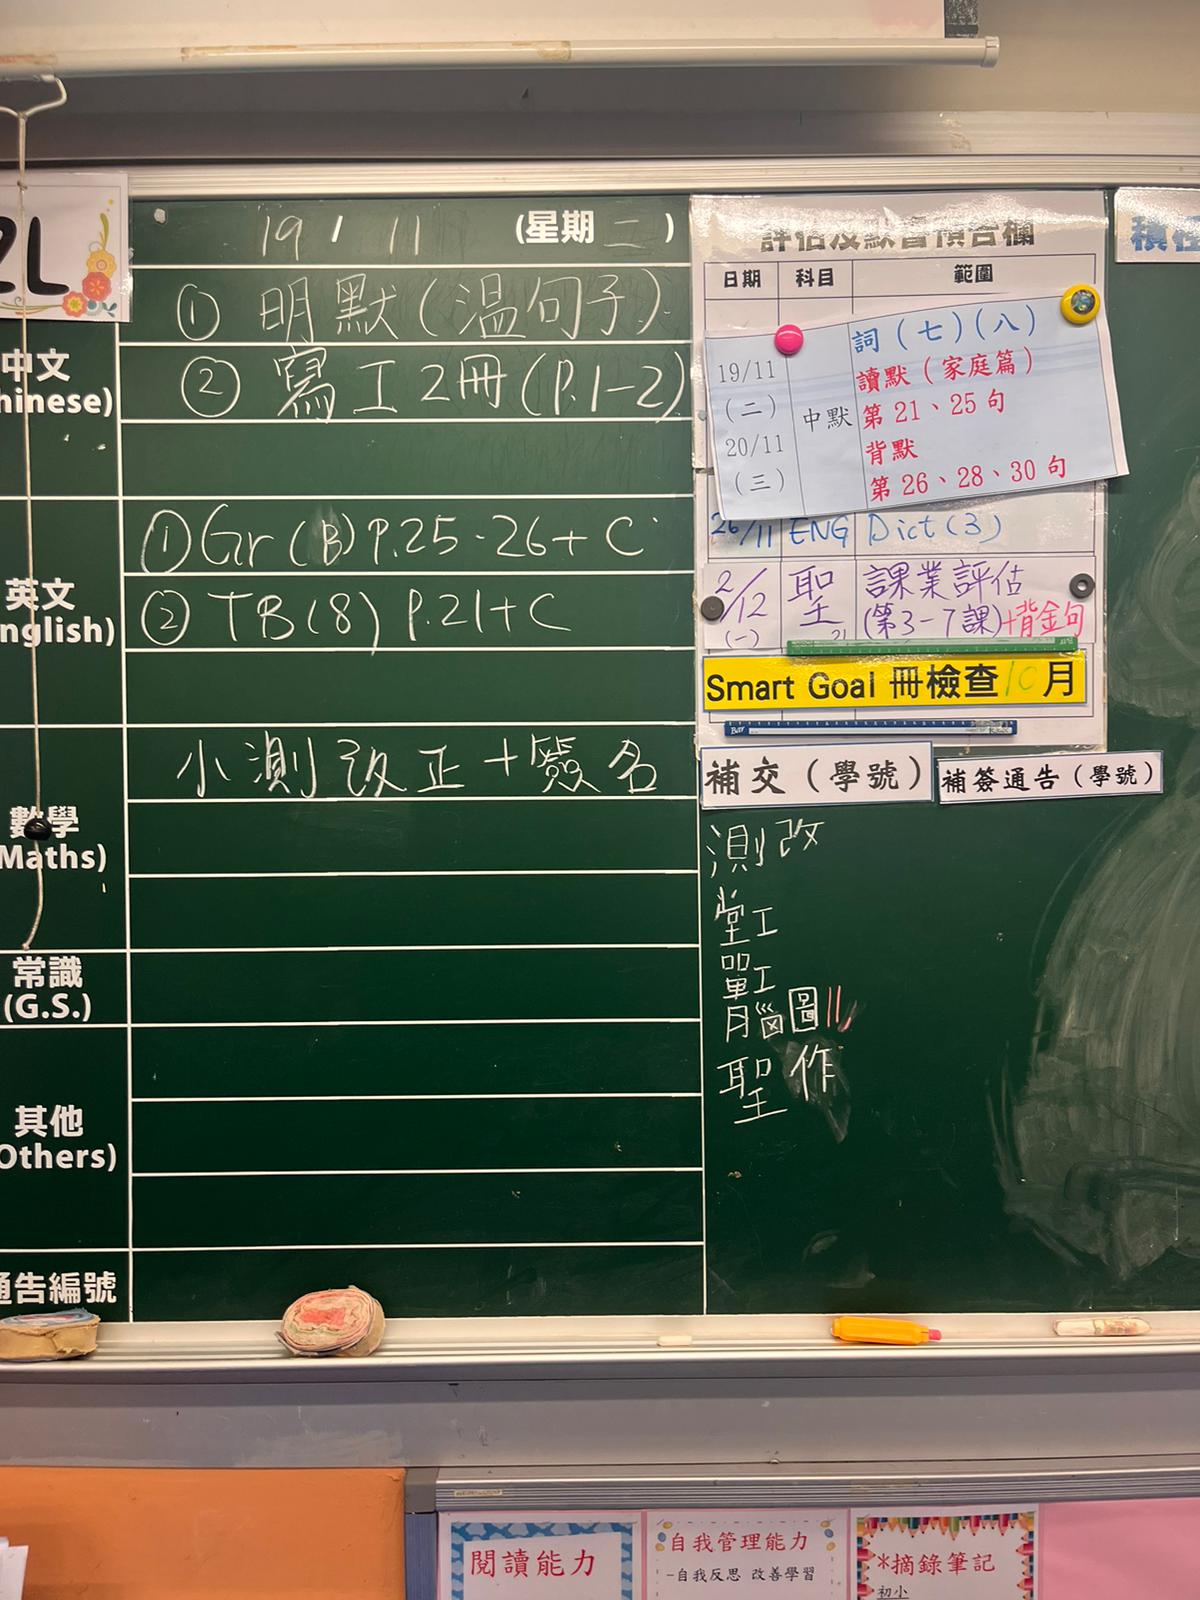 2L
19 / 11 (星期二)
中文
hinese)
① 明默(温句子)
② 寫工2冊(P.1-2)
英文
nglish)
① Gr(B) P.25-26+C
② TB(8) P.21+C
數學
Maths)
小測改正+簽名
常識
(G.S.)
其他
Others)
通告編號
評估及默書預告欄
日期 科目 範圍
19/11
(二)
20/11
(三)
中默
詞(七)(八)
讀默(家庭篇)
第21、25句
背默
第26、28、30句
26/11 ENG Dict(3)
2/12
(一)
聖
課業評估
(第3-7課)+背金句
Smart Goal 冊檢查10月
補交(學號)
補簽通告(學號)
測改
堂工
單工
腦圖
聖作
積
閱讀能力
自我管理能力
-自我反思 改善學習
*摘錄筆記
初小